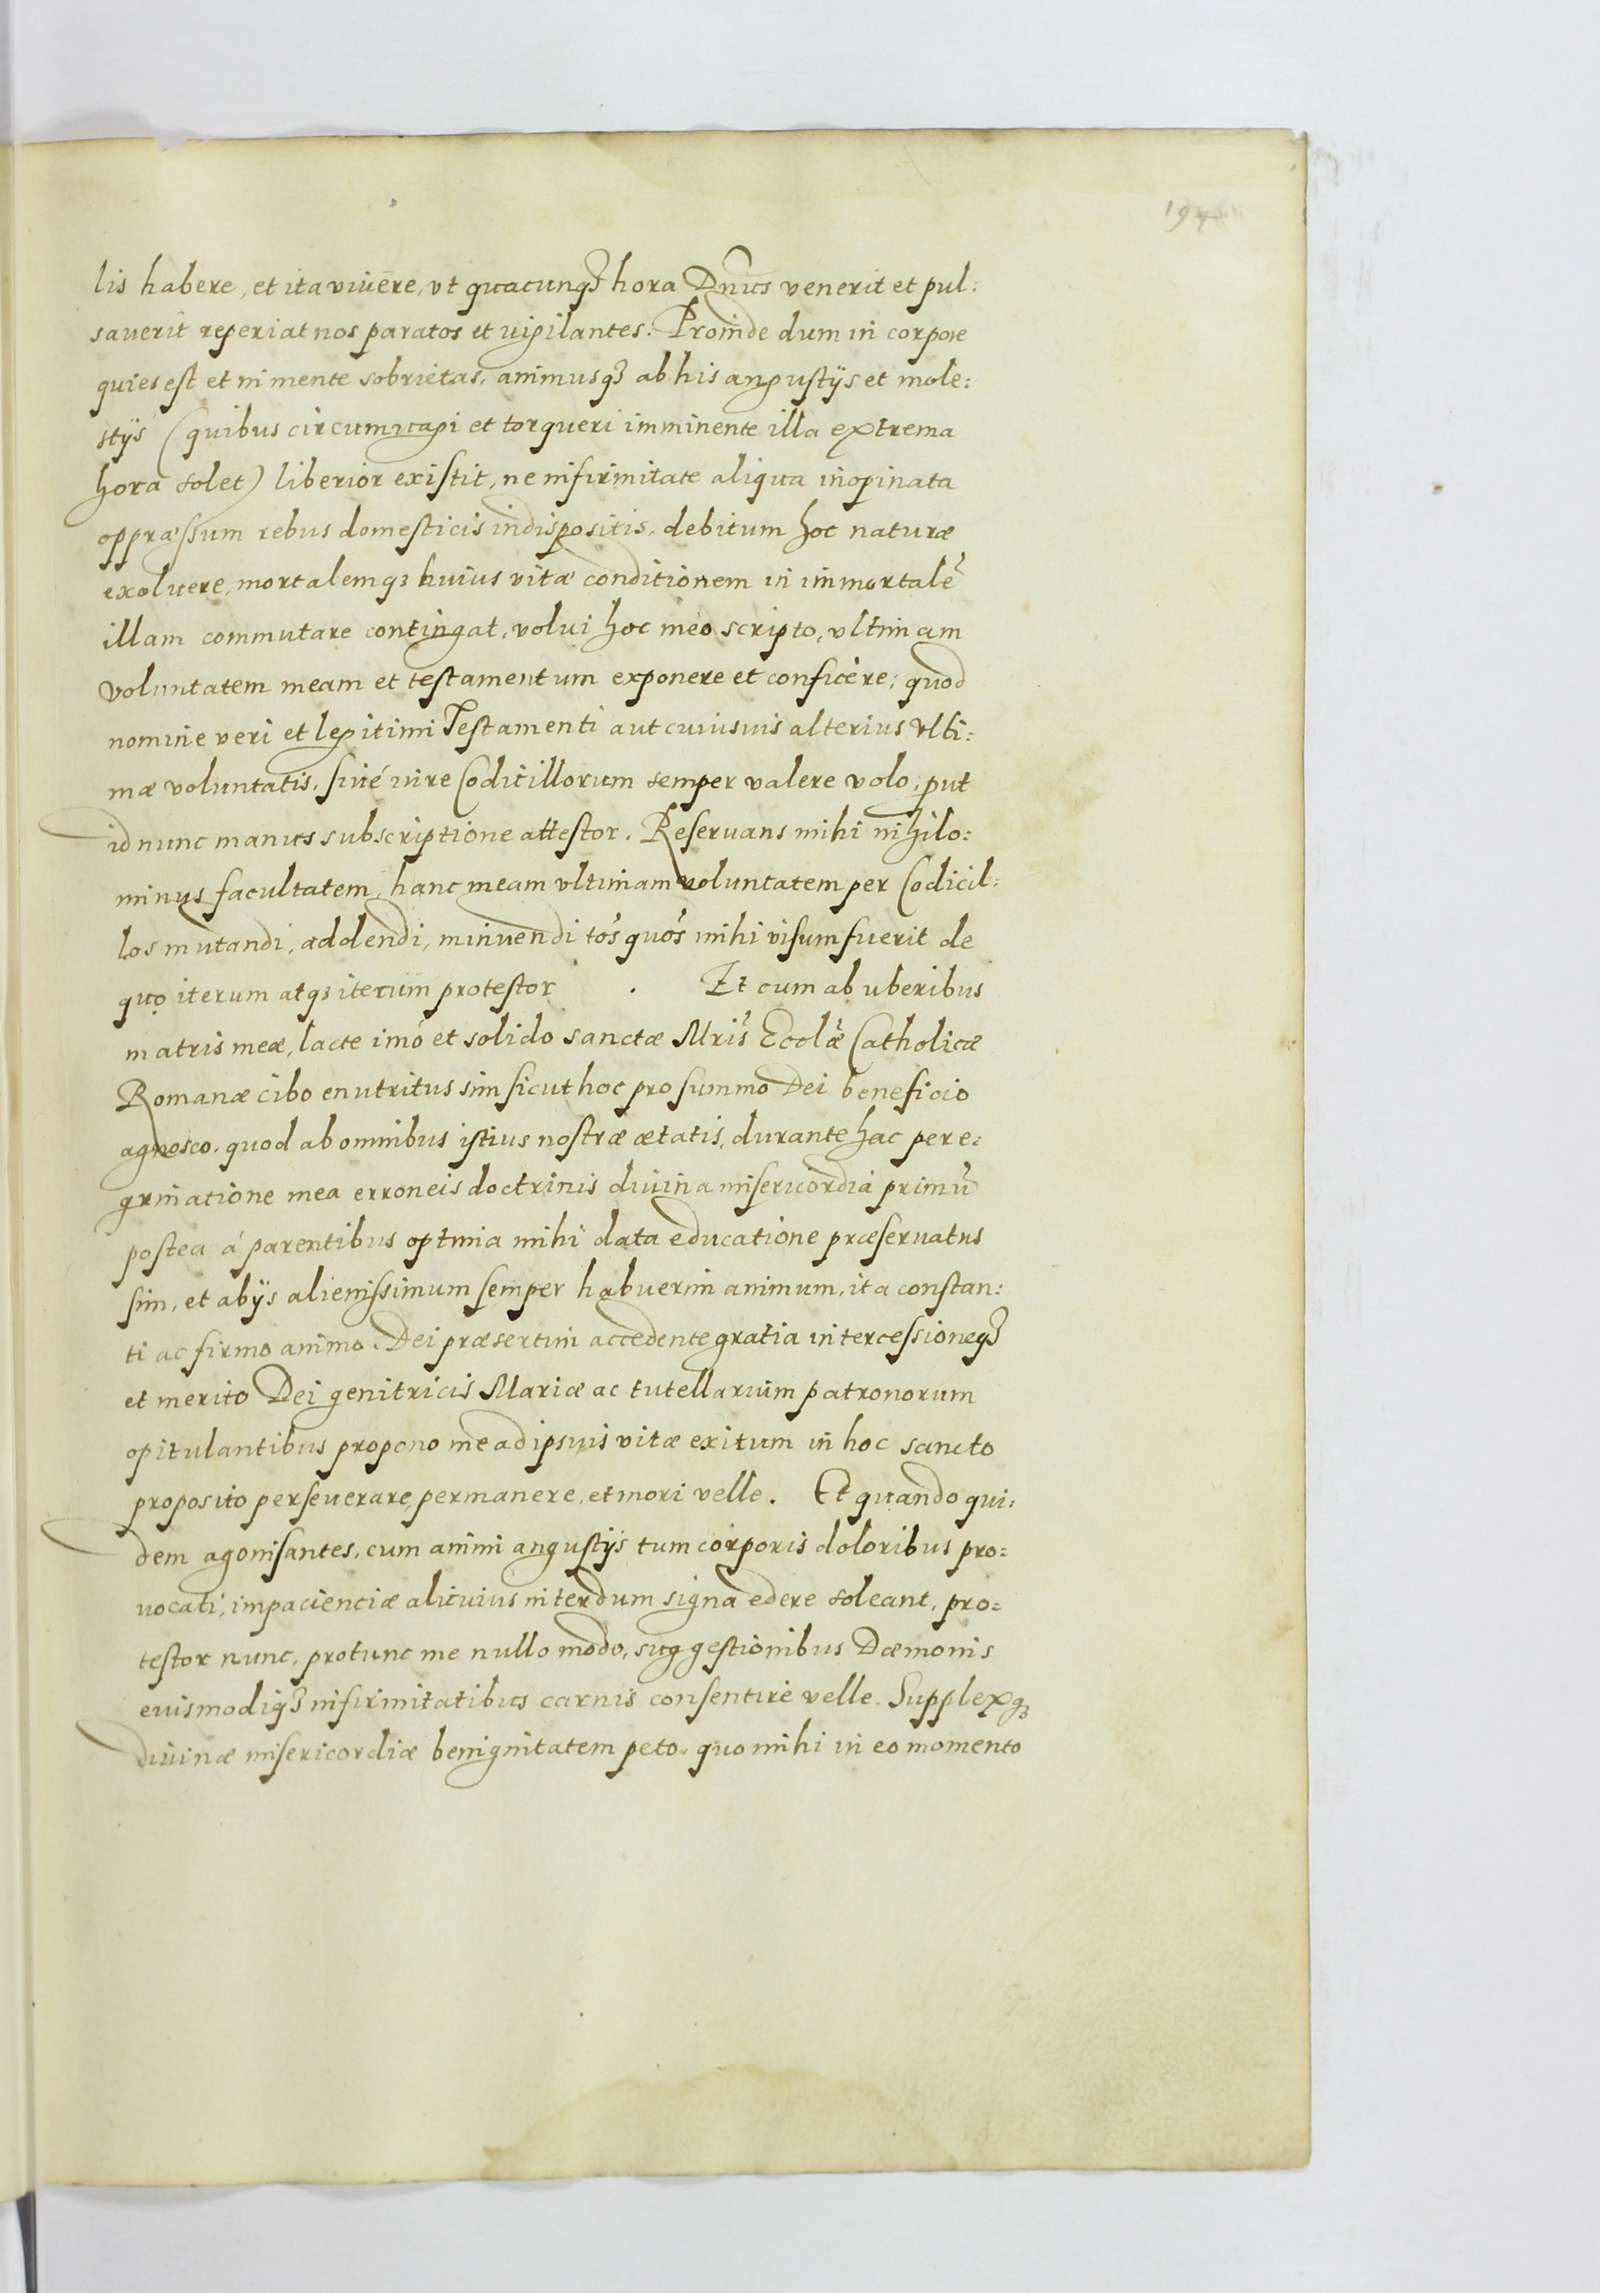 lis habere, et ita viuēre, vt quacunqꝫ hora Dn̄us venerit et pul:
sauerit reperiat nos paratos et uigilantes. Proinde dum in corpore
quies est et in mente sobrietas, animusqꝫ ab his angustijs et mole:
stijs (quibus circum et torqueri imminente illa extrema
hora solet) liberior existit, ne infirmitate aliqua inopinata
oppræssum rebus domesticis indispositis, debitum hoc naturæ
exoluere, mortalemqꝫ huius vitæ conditionem in immortalē
illam commutare contingat, volui hoc meo scripto, vltimam
voluntatem meam et testamentum exponere et conficere; quod
nomine veri et legitimi Testamenti aut cuiusuis alterius vlti:
mæ voluntatis, siué iure Codicillorum semper valere volo, put
id nunc manus subscriptione attestor. Reseruans mihi nihilo:
minus facultatem, hanc meam vltimam voluntatem per Codicil:
los mutandi, addendi, minuendi tos̄ quos̄ mihi visum fuerit de
quo iterum atqꝫ iterum protestor . Et cum ab vberibus
matris meæ, lacte imó et solido sanctæ Mris̄ Eccl̄æ Catholicæ
Romanæ cibo enutritus sim sicut hoc pro summo Dei beneficio
agnosco, quod ab omnibus istius nostræ ætatis, durante hac pere:
grinatione mea erroneis doctrinis diuina misericordia primū
postea á parentibus optima mihi data educatione præseruatus
sim, et ab ijs alienissimum semper habuerim animum, ita constan:
ti ac firmo animo, Dei præsertim accedente gratia intercessioneqꝫ
et merito Dei genitricis Mariæ ac tutellarium patronorum
opitulantibus propono me ad ipsuis vitæ exitum in hoc sancto
proposito perseuerare, permanere, et mori velle. Et quando qui:
dem agonisantes, cum animi angustijs tum corporis doloribus pro:
uocati, impacienciæ alicuius interdum signa edere soleant, pro:
testor nunc, pro tunc me nullo modo, suggestionibus Dæmonis
euismodiqꝫ infirmitatibus carnis consentire velle. Supplexqꝫ
diuinæ misericordiæ benignitatem peto, quo mihi in eo momento